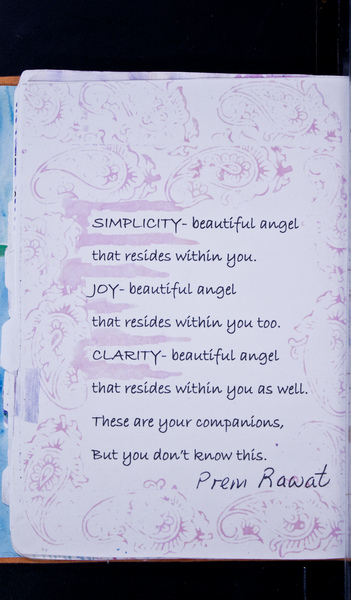 SIMPLICITY- beautiful angel
that resides within you.
JOY- beautiful angel
that resides within you too.
CLARITY- beautiful angel
that resides within you as well.
These are your companions,
But you don't know this.
Prem Rawat